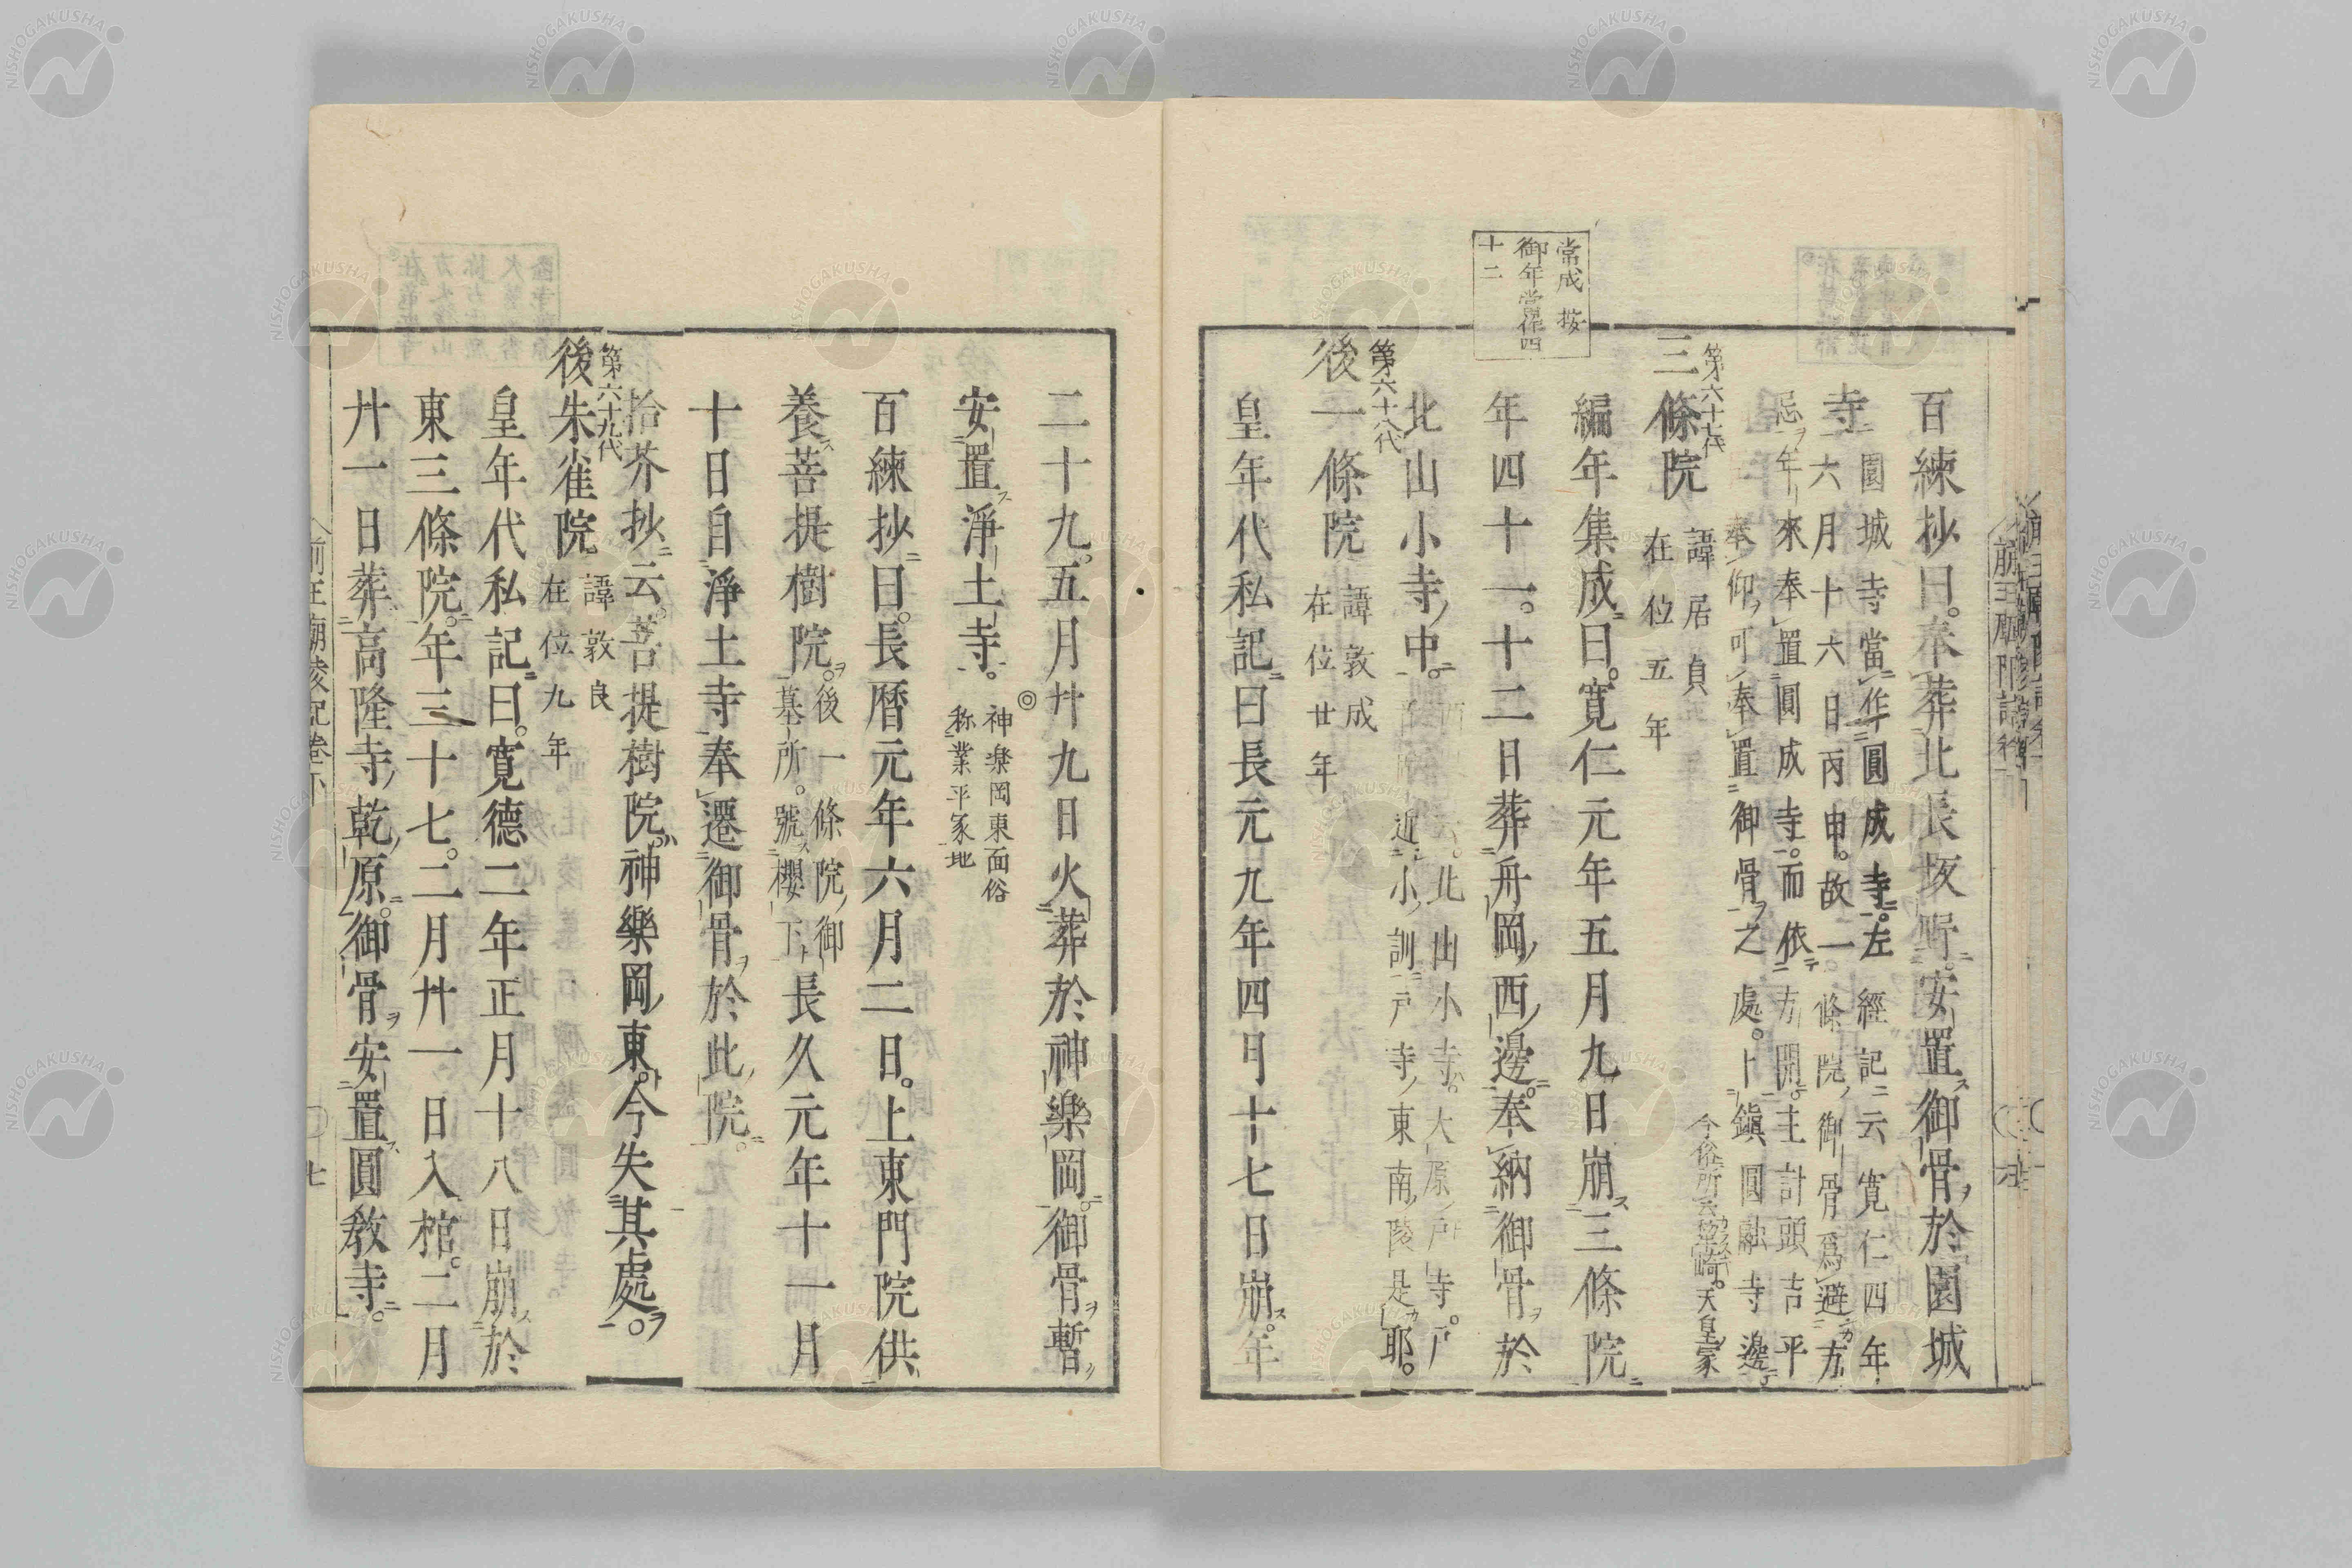 百練抄曰。奉葬北長坂野。安置御骨於園城
寺 園城寺當作圓成寺。左經記云寛仁四年
六月十六日丙申。故一條院御骨爲避方
忌年來奉置圓成寺。而依方開。主計頭吉平
奉仰可奉置御骨之處。卜鎮圓融寺邊。
今俗所云 天皇冢
第六十七代
三條院 諱居貞
在位五年
編年集成曰。寛仁元年五月九日崩三條院
常成按
御年當作四
十二
年四十一。十二日葬舟岡西邊。奉納御骨於
北山小寺中。
北山小寺。大原戸寺。戸
近小訓戸寺東南陵是耶。
第六十八代
後一條院 諱敦成
在位廿年
皇年代私記曰長元九年四月十七日崩。年
二十九。五月廿九日火葬於神樂岡。御骨暫
安置淨土寺。◎神楽岡東面俗
称業平冢地
百練抄曰。長暦元年六月二日。上東門院供
養菩提樹院。後一條院御
墓所。號櫻下長久元年十一月
十日自淨土寺奉遷御骨於此院。
拾芥抄云。菩提樹院神樂岡東。今失其處。
第六十九代
後朱雀院 諱敦良
在位九年
皇年代私記曰。寛德二年正月十八日崩於
東三條院。年三十七。二月廿一日入棺。二月
廿一日葬高隆寺乾原。御骨安置圓教寺。
前王廟陵記卷下
七
NISHOGAKUSHA